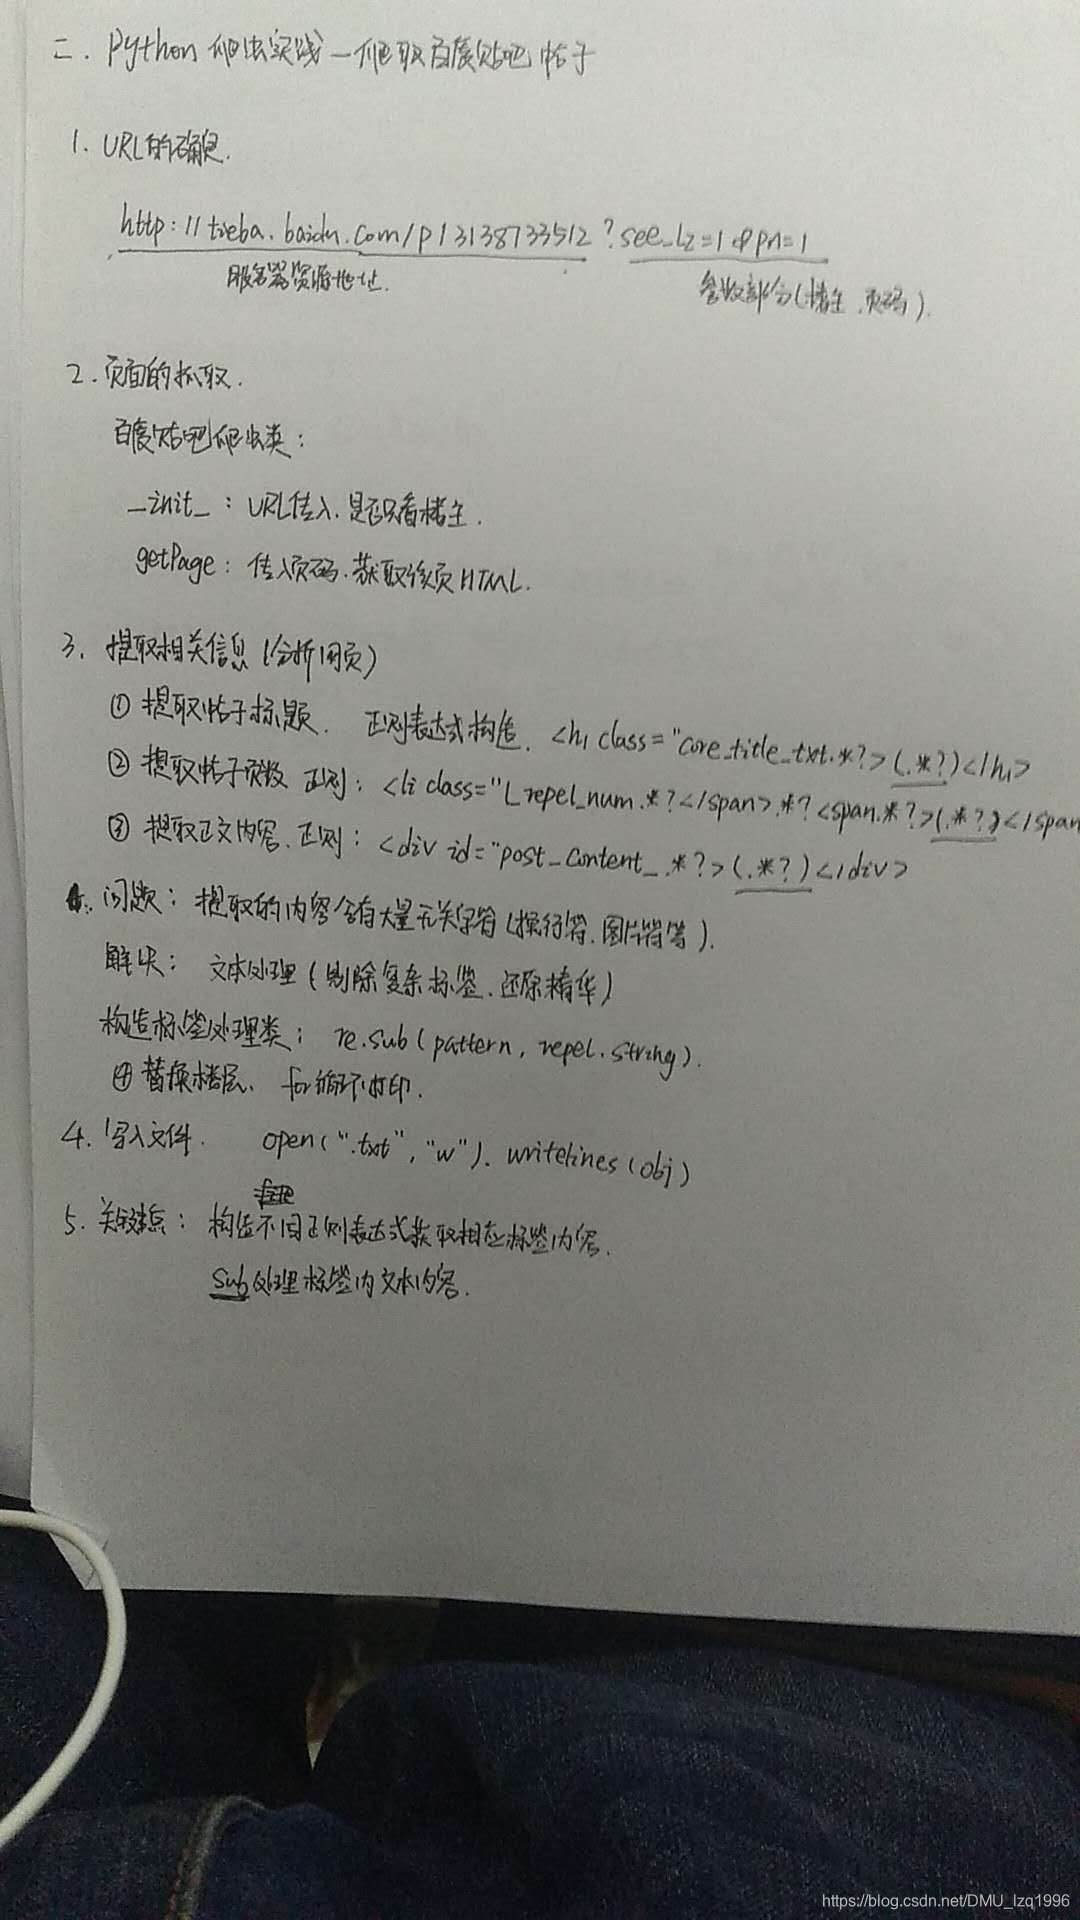 二. Python 爬虫实践—爬取百度贴吧帖子
1. URL的确定.
http://tieba.baidu.com/p/3138733512?see_lz=1&pn=1
服务器资源地址. 参数部分(楼主.页码).
2. 页面的抓取.
百度贴吧爬虫类:
_init_: URL传入.是否只看楼主.
getPage: 传入页码.获取该页HTML.
3. 提取相关信息(分析网页)
① 提取帖子标题. 正则表达式构造. <h1 class="core_title_txt.*?>(.*?)</h1>
② 提取帖子页数 正则: <li class="l_repel_num.*?</span>.*?<span.*?>(.*?)</span
③ 提取正文内容.正则: <div id="post_content_.*?>(.*?)</div>
问题: 提取的内容含有大量无关字符(换行符.图片符等).
解决: 文本处理(剔除复杂标签.还原精华)
构造标签处理类: re.sub(pattern, repel.string).
④ 替换楼层. for循环打印.
4. 写入文件. open(".txt","w"). writelines(obj)
5. 关键点: 构造不同正则表达式获取相应标签内容.
sub处理标签内文本内容.
https://blog.csdn.net/DMU_lzq1996